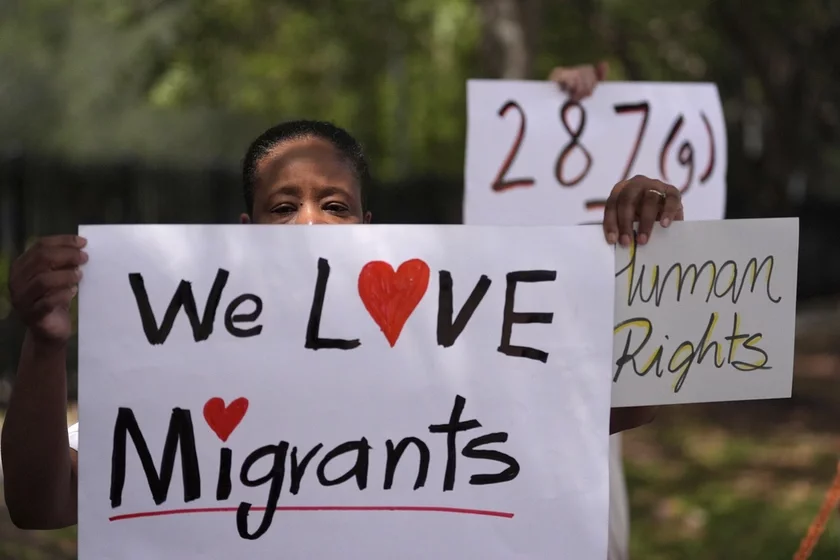 287(g)
We LOVE
Migrants
Human
Rights